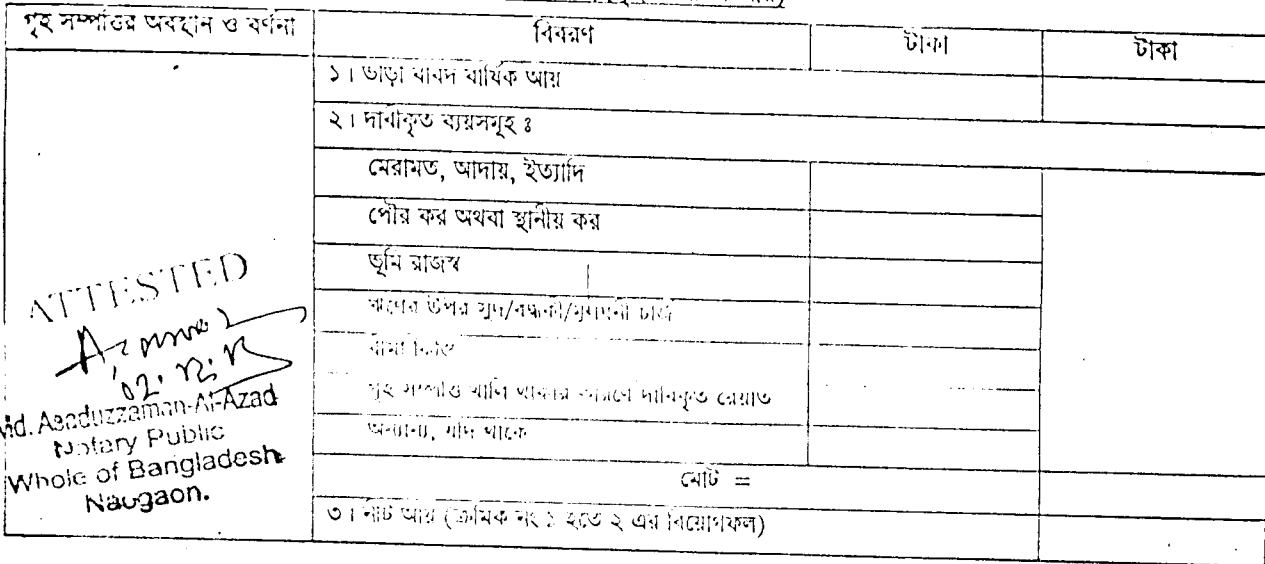 গৃহ সম্পত্তির অবস্থান ও বর্ণনা
বিবরণ
টাকা
টাকা
১। ভাড়া বাবদ বার্ষিক আয়
২। দাবীকৃত ব্যয়সমূহ ঃ
মেরামত, আদায়, ইত্যাদি
পৌর কর অথবা স্থানীয় কর
ভূমি রাজস্ব
ঋণের উপর সুদ/বন্ধকী/মূলধনী চার্জ
বীমা কিস্তি
গৃহ সম্পত্তি খালি থাকার কারণে দাবিকৃত রেয়াত
অন্যান্য, যদি থাকে
মোট =
৩। নীট আয় (ক্রমিক নং ১ হতে ২ এর বিয়োগফল)
ATTESTED
Md. Asaduzzaman-Al-Azad
Notary Public
Whole of Bangladesh
Naogaon.